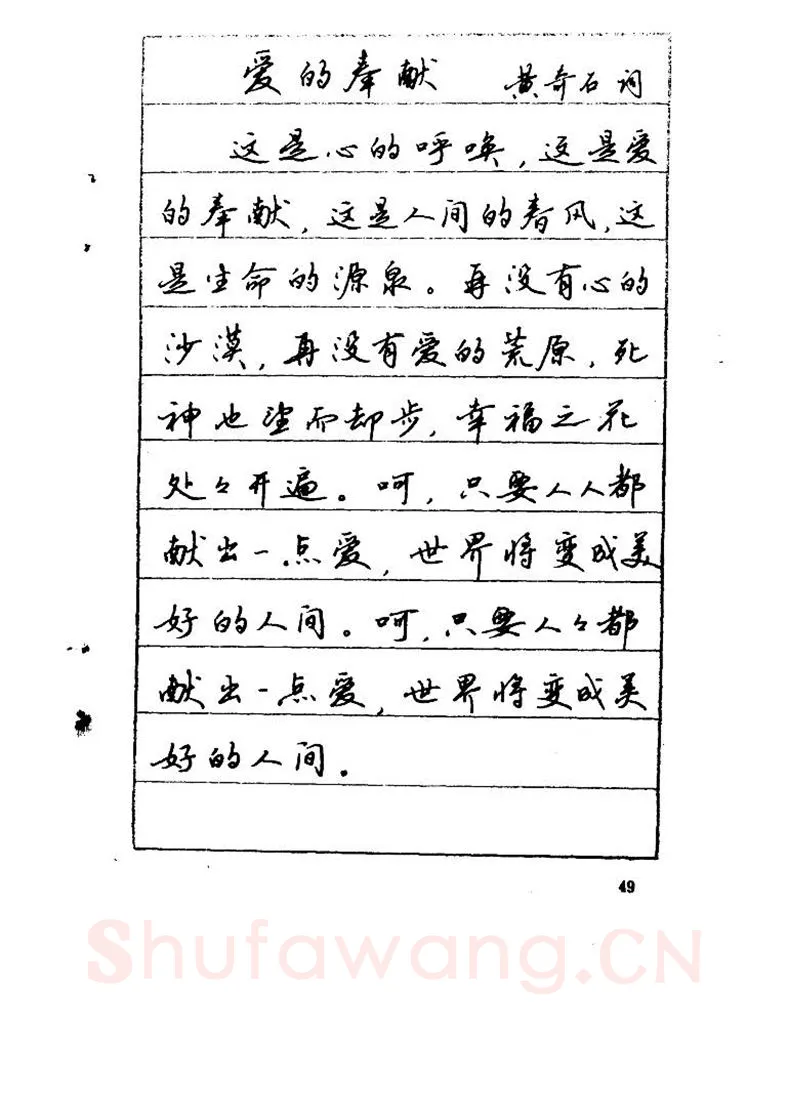 爱的奉献 黄奇石词
这是心的呼唤，这是爱
的奉献，这是人间的春风，这
是生命的源泉。再没有心的
沙漠，再没有爱的荒原，死
神也望而却步，幸福之花
处々开遍。呵，只要人人都
献出一点爱，世界将变成美
好的人间。呵，只要人々都
献出一点爱，世界将变成美
好的人间。
49
Shufawang.CN